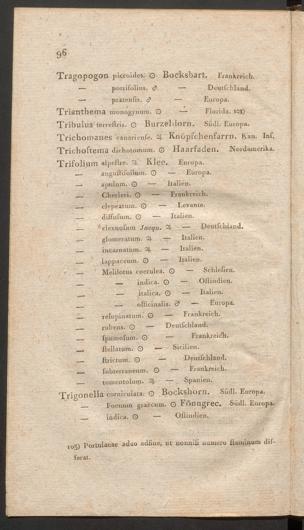 96
Tragopogon picroides. ☉ Bocksbart. Frankreich.
— porrifolius. ♂ — Deutſchland.
— pratenſis. ♂ — Europa.
Trianthema monogynum. ☉ — Florida. 105)
Tribulus terreſtris. ☉ Burzeldorn. Südl. Europa.
Trichomanes canarienſe. ♃ Knöpfchenfarrn. Kan. Inſ.
Trichoſtema dichotomum. ☉ Haarfaden. Nordamerika.
Trifolium alpeſtre. ♃ Klee. Europa.
— anguſtifolium. ☉ — Europa.
— — Italien.
— Cherleri. ☉ — Frankreich.
— clypeatum. ☉ — Levante.
— diffuſum. ☉ — Italien.
— flexuoſum Jacqu. ♃ — Deutſchland.
— glomeratum. ♃ — Italien.
— incarnatum. ♃ — Italien.
— lappaceum. ☉ — Italien.
— Melilotus coerulea. ☉ — Schleſien.
— — indica. ☉ — Oſtindien.
— — italica. ☉ — Italien.
— — officinalis. ♂ — Europa.
— reſupinatum. ☉ — Frankreich.
— rubens. ☉ — Deutſchland.
— ſpumoſum. ☉ — Frankreich.
— ſtellatum. ☉ — Sicilien.
— ſtrictum. ☉ — Deutſchland.
— ſubterraneum. ☉ — Frankreich.
— tomentoſum. ♃ — Spanien.
Trigonella corniculata. ☉ Bockshorn. Südl. Europa.
— Foenum graecum. ☉ Fönngrec. Südl. Europa.
— indica. ☉ — Oſtindien.
105) Portulacae adeo adfine, ut nonniſi numero ſtaminum dif-
ferat.